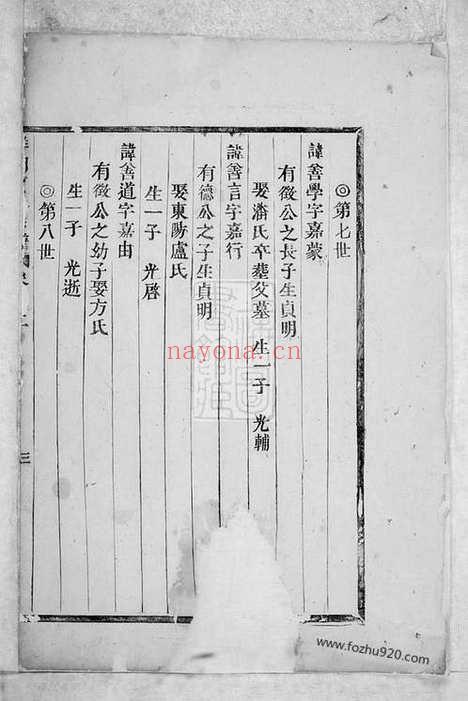 ◎第七世
諱善學字嘉蒙
有徵公之長子生貞明
娶潘氏卒葬父墓 生一子 光輔
諱善言字嘉行
有德公之子生貞明
娶東陽盧氏
生一子 光啓
諱善道字嘉由
有徵公之幼子娶方氏
生一子 光逝
◎第八世
三
nayona.cn
www.fozhu920.com